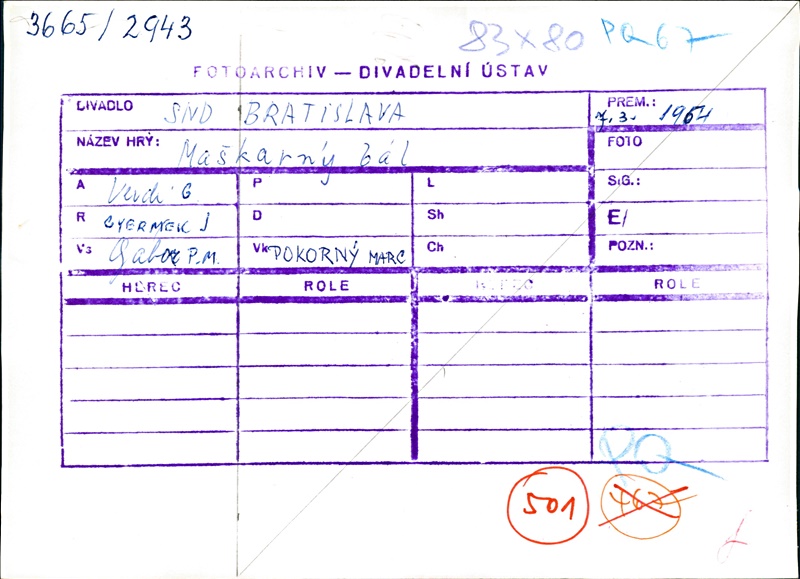 3665/2943
83×80 PQ67
FOTOARCHIV — DIVADELNÍ ÚSTAV
DIVADLO SND BRATISLAVA PREM.: 7.3. 1964
NÁZEV HRÝ: Maškarný bál FOTO
A Verdi G P L SIG.:
R GYERMEK J D Sh E/
Vs Gabor P.M. Vk POKORNÝ MARC Ch POZN.:
HEREC ROLE HEREC ROLE
501 467